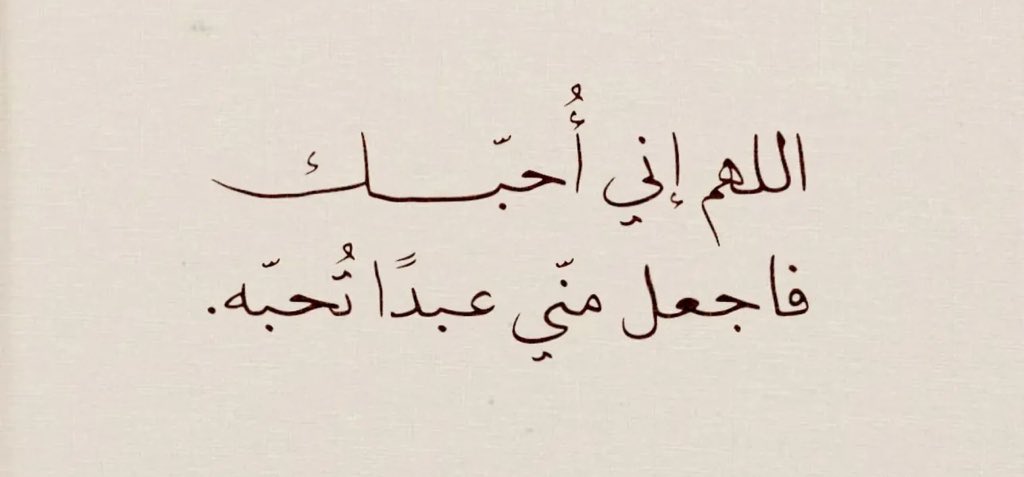 اللهم إني أُحبّـــك
فاجعل منّي عبدًا تُحبّه.